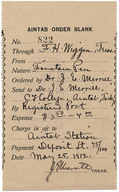 AINTAB ORDER BLANK
No. 822
Through F. H. Wiggin, Treas.
From
Nature Fountain Pen
Ordered by Dr. J. E. Merrill
Send to Dr. J. E. Merrill,
C. T. College, Aintab,
By Registered Post
Expense
Charge in a/c to
Aintab Station
Payment Deposit St.
Date May 25, 1912.
J. E. Merrill
TREAS.